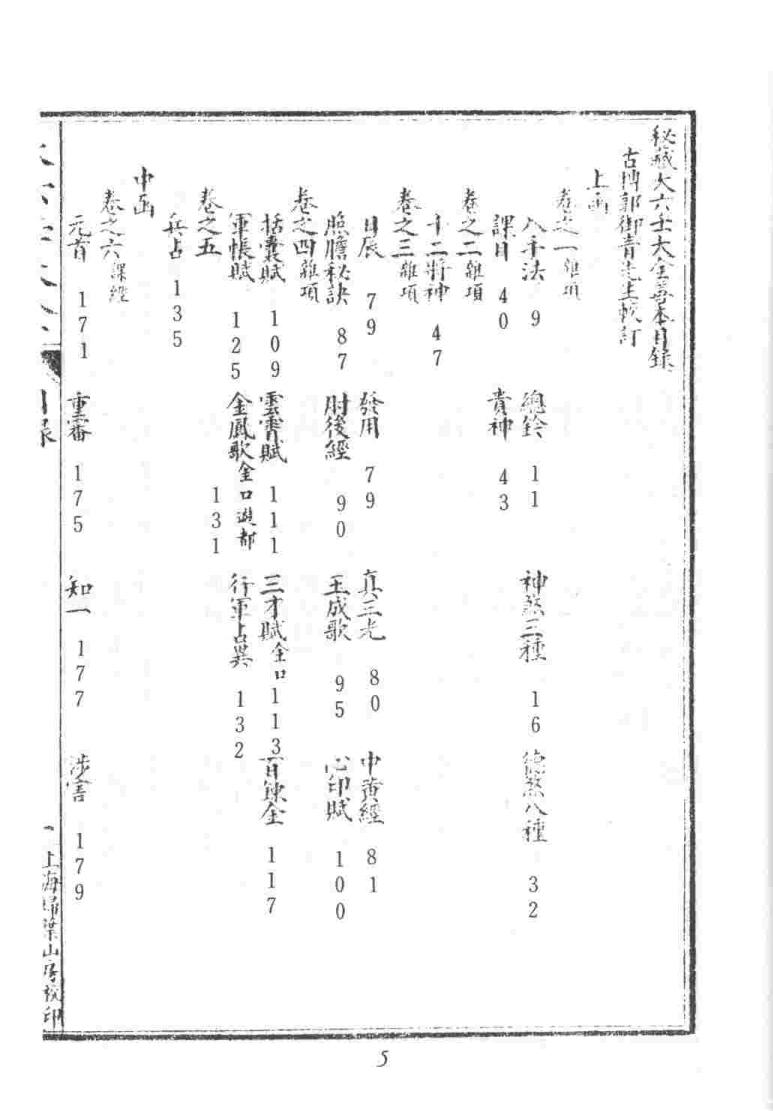 秘藏大六壬大全善本目錄
古博郭御青先生較訂
上函
卷之一雜項
入手法 9 總鈐 11 神煞三種 16 德煞八種 32
課目 40 貴神 43
卷之二雜項
十二將神 47
卷之三雜項
日辰 79 發用 79 真三光 80 中黃經 81
照膽秘訣 87 肘後經 90 玉成歌 95 心印賦 100
卷之四雜項
括囊賦 109 雲霄賦 111 三才賦金口 113 百鍊金 117
軍帳賦 125 金鳳歌金口遊都 131 行軍占異 132
卷之五
兵占 135
中函
卷之六課經
元首 171 重審 175 知一 177 涉害 179
目錄
一 上海掃葉山房校印
5